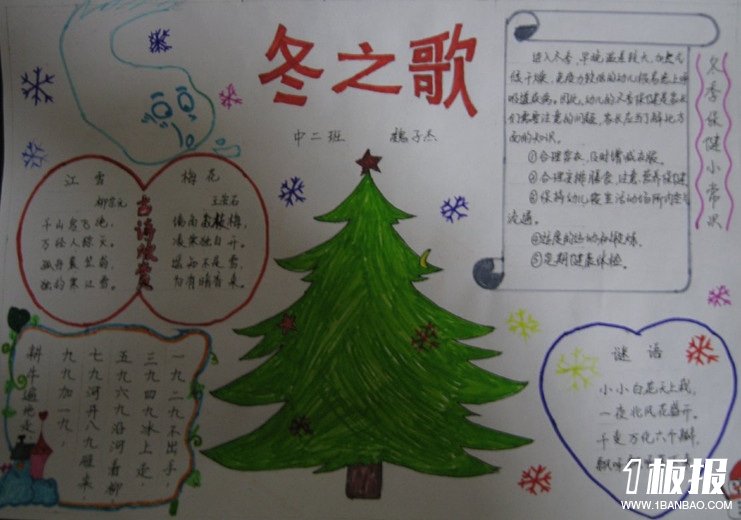 冬之歌
中二班
江雪
柳宗元
千山鸟飞绝,
万径人踪灭。
孤舟蓑笠翁,
独钓寒江雪。
古诗欣赏
梅花
王安石
墙角数枝梅,
凌寒独自开。
遥知不是雪,
为有暗香来。
冬季保健小常识
进入冬季,早晚温差较大,加
较干燥,免疫力较低的幼儿很容易患上呼
吸道疾病。因此,幼儿的冬季保健是家长
们需要注意的问题,家长应当了解
面的知识。
①合理穿衣,及时增减衣服。
②合理安排膳食,注意营养保健
③保持幼儿生活活动场所内空气
流通。
④适度的运动和锻炼。
⑤定期健康体检。
一九二九不出手,
三九四九冰上走,
五九六九沿河看柳
七九河开八九雁来,
九九加一九,
耕牛遍地走
谜语
小小白花天上栽,
一夜北风花盛开。
千变万化六个瓣,
飘
1板报
WWW.1BANBAO.COM